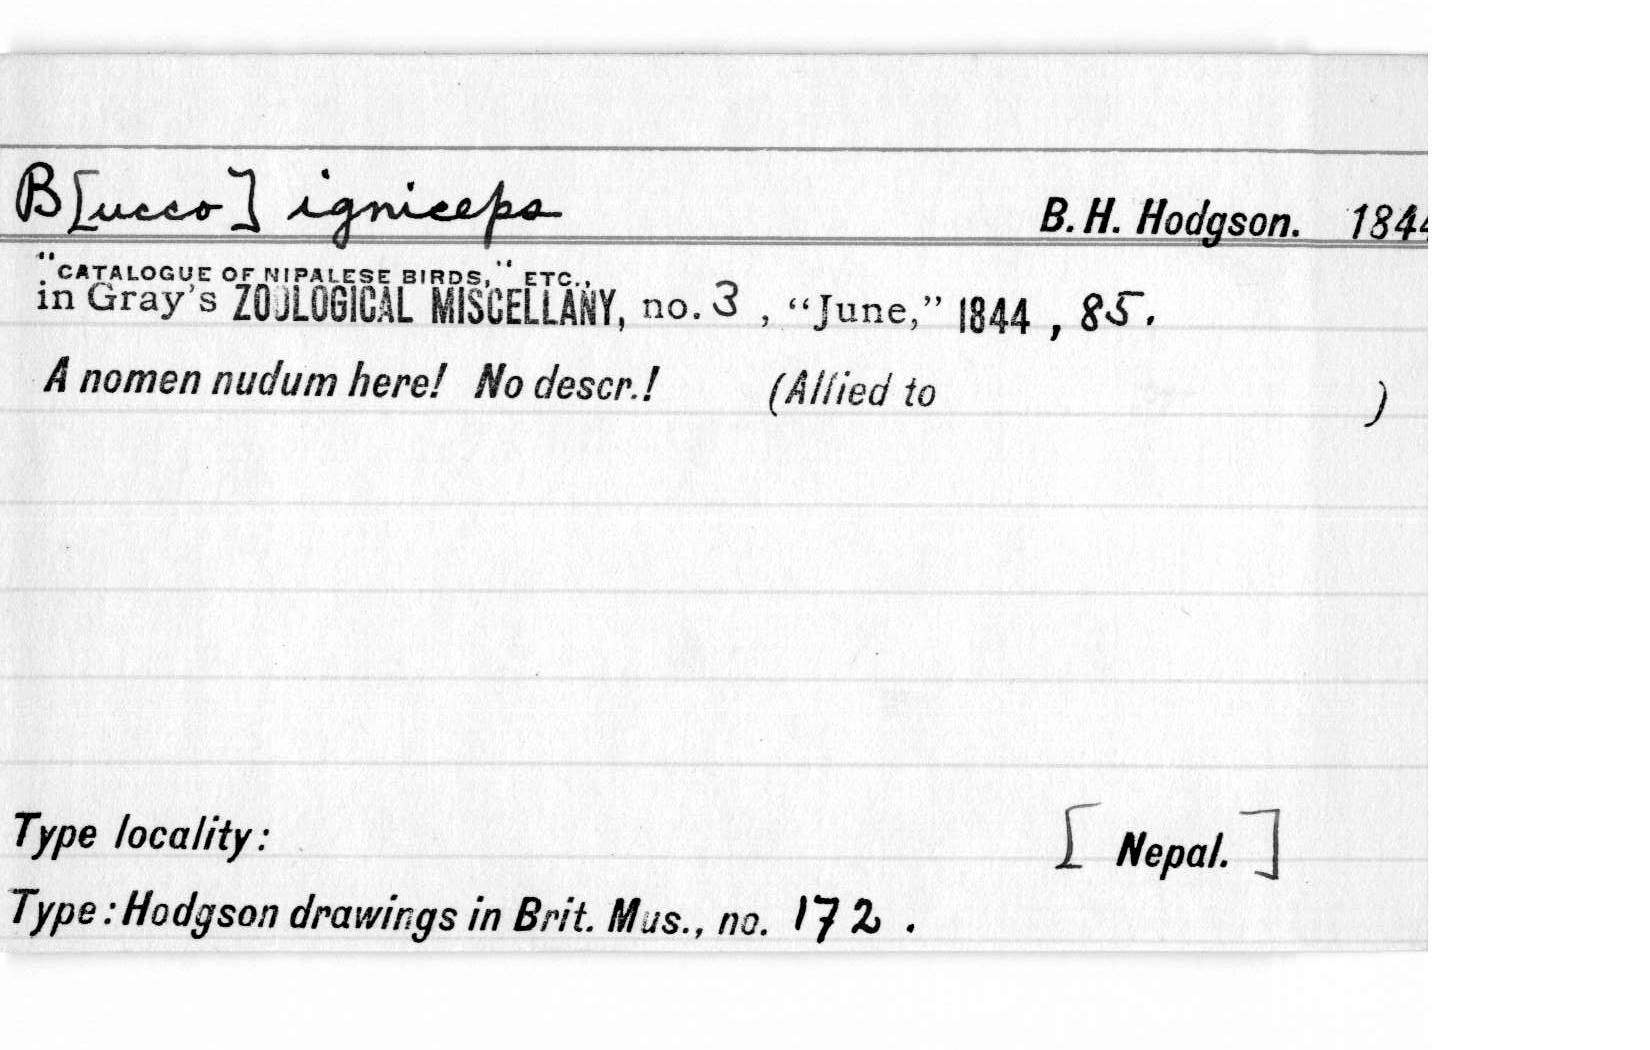 B[ucco] igniceps B. H. Hodgson. 1844
"CATALOGUE OF NIPALESE BIRDS," ETC.,
in Gray's ZOOLOGICAL MISCELLANY, no. 3, "June," 1844, 85.
A nomen nudum here! No descr.! (Allied to )
Type locality: [Nepal.]
Type: Hodgson drawings in Brit. Mus., no. 172.